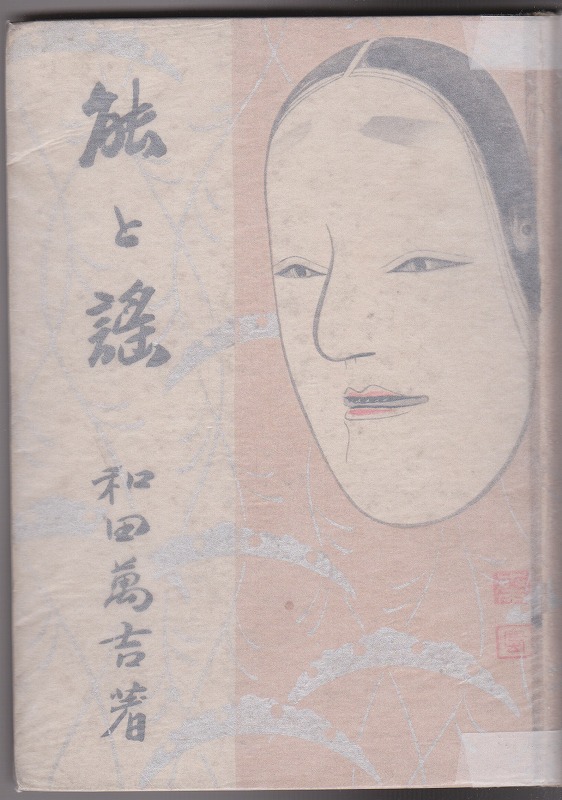 能と謡
和田萬吉著